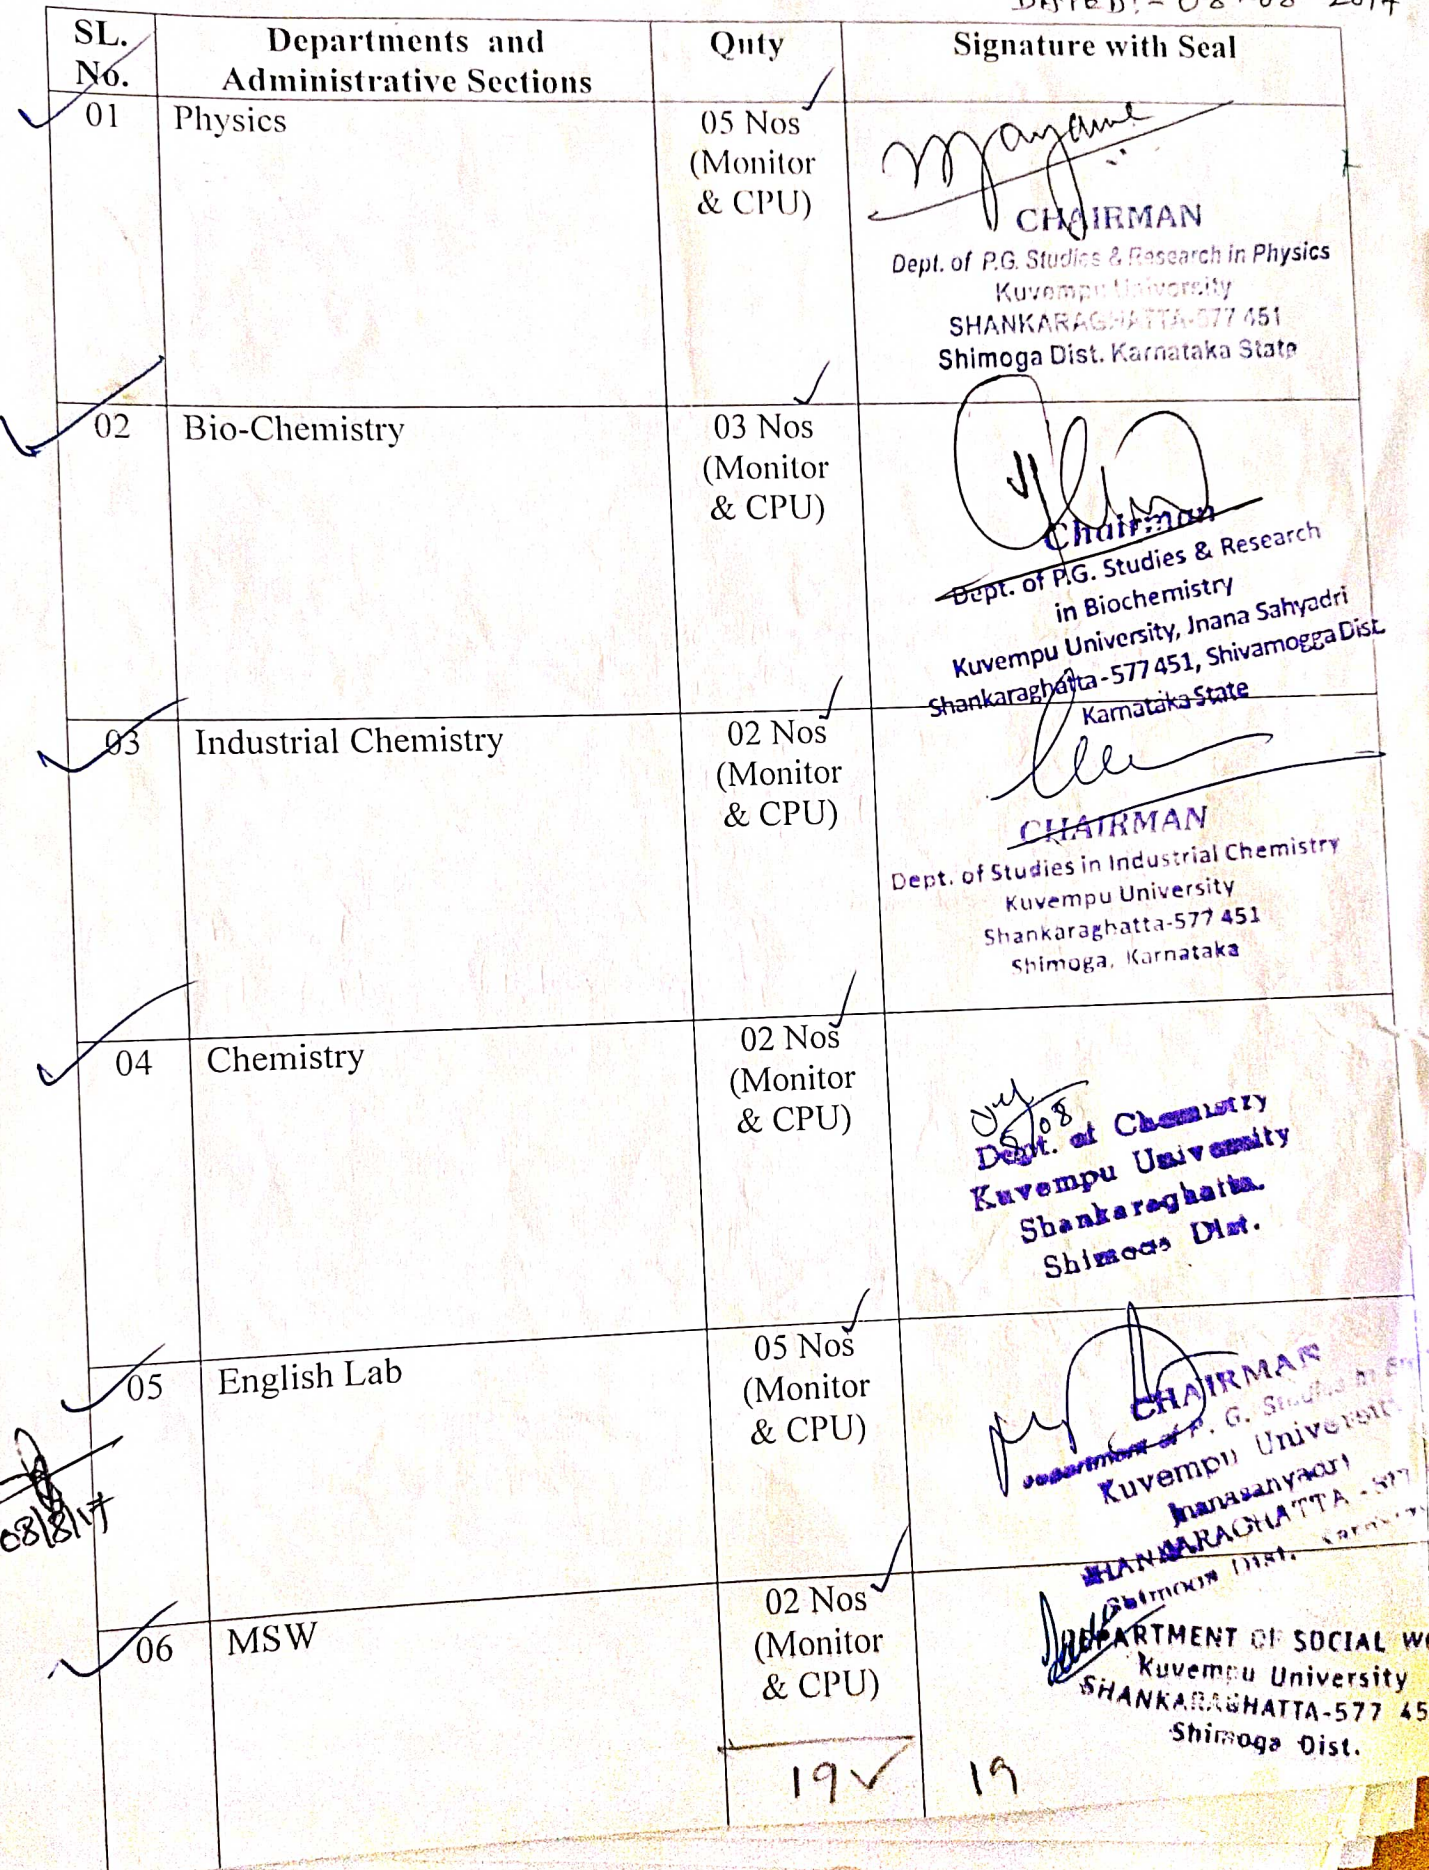 DATED:- 08-08-2017
SL. No.
Departments and Administrative Sections
Qnty
Signature with Seal
01
Physics
05 Nos
(Monitor
& CPU)
CHAIRMAN
Dept. of P.G. Studies & Research in Physics
Kuvempu University
SHANKARAGHATTA-577 451
Shimoga Dist. Karnataka State
02
Bio-Chemistry
03 Nos
(Monitor
& CPU)
Chairman
Dept. of P.G. Studies & Research
in Biochemistry
Kuvempu University, Jnana Sahyadri
Shankaraghatta-577 451, Shivamogga Dist.
Karnataka State
03
Industrial Chemistry
02 Nos
(Monitor
& CPU)
CHAIRMAN
Dept. of Studies in Industrial Chemistry
Kuvempu University
Shankaraghatta-577 451
Shimoga, Karnataka
04
Chemistry
02 Nos
(Monitor
& CPU)
8/08
Dept. of Chemistry
Kuvempu University
Shankaraghatta.
Shimoga Dist.
05
English Lab
05 Nos
(Monitor
& CPU)
CHAIRMAN
Department of P. G. Studies in
Kuvempu University
SHANKARAGHATTA - 577
Shimoga Dist.
08/8/17
06
MSW
02 Nos
(Monitor
& CPU)
DEPARTMENT OF SOCIAL W
Kuvempu University
SHANKARAGHATTA-577 45
Shimoga Dist.
19 19